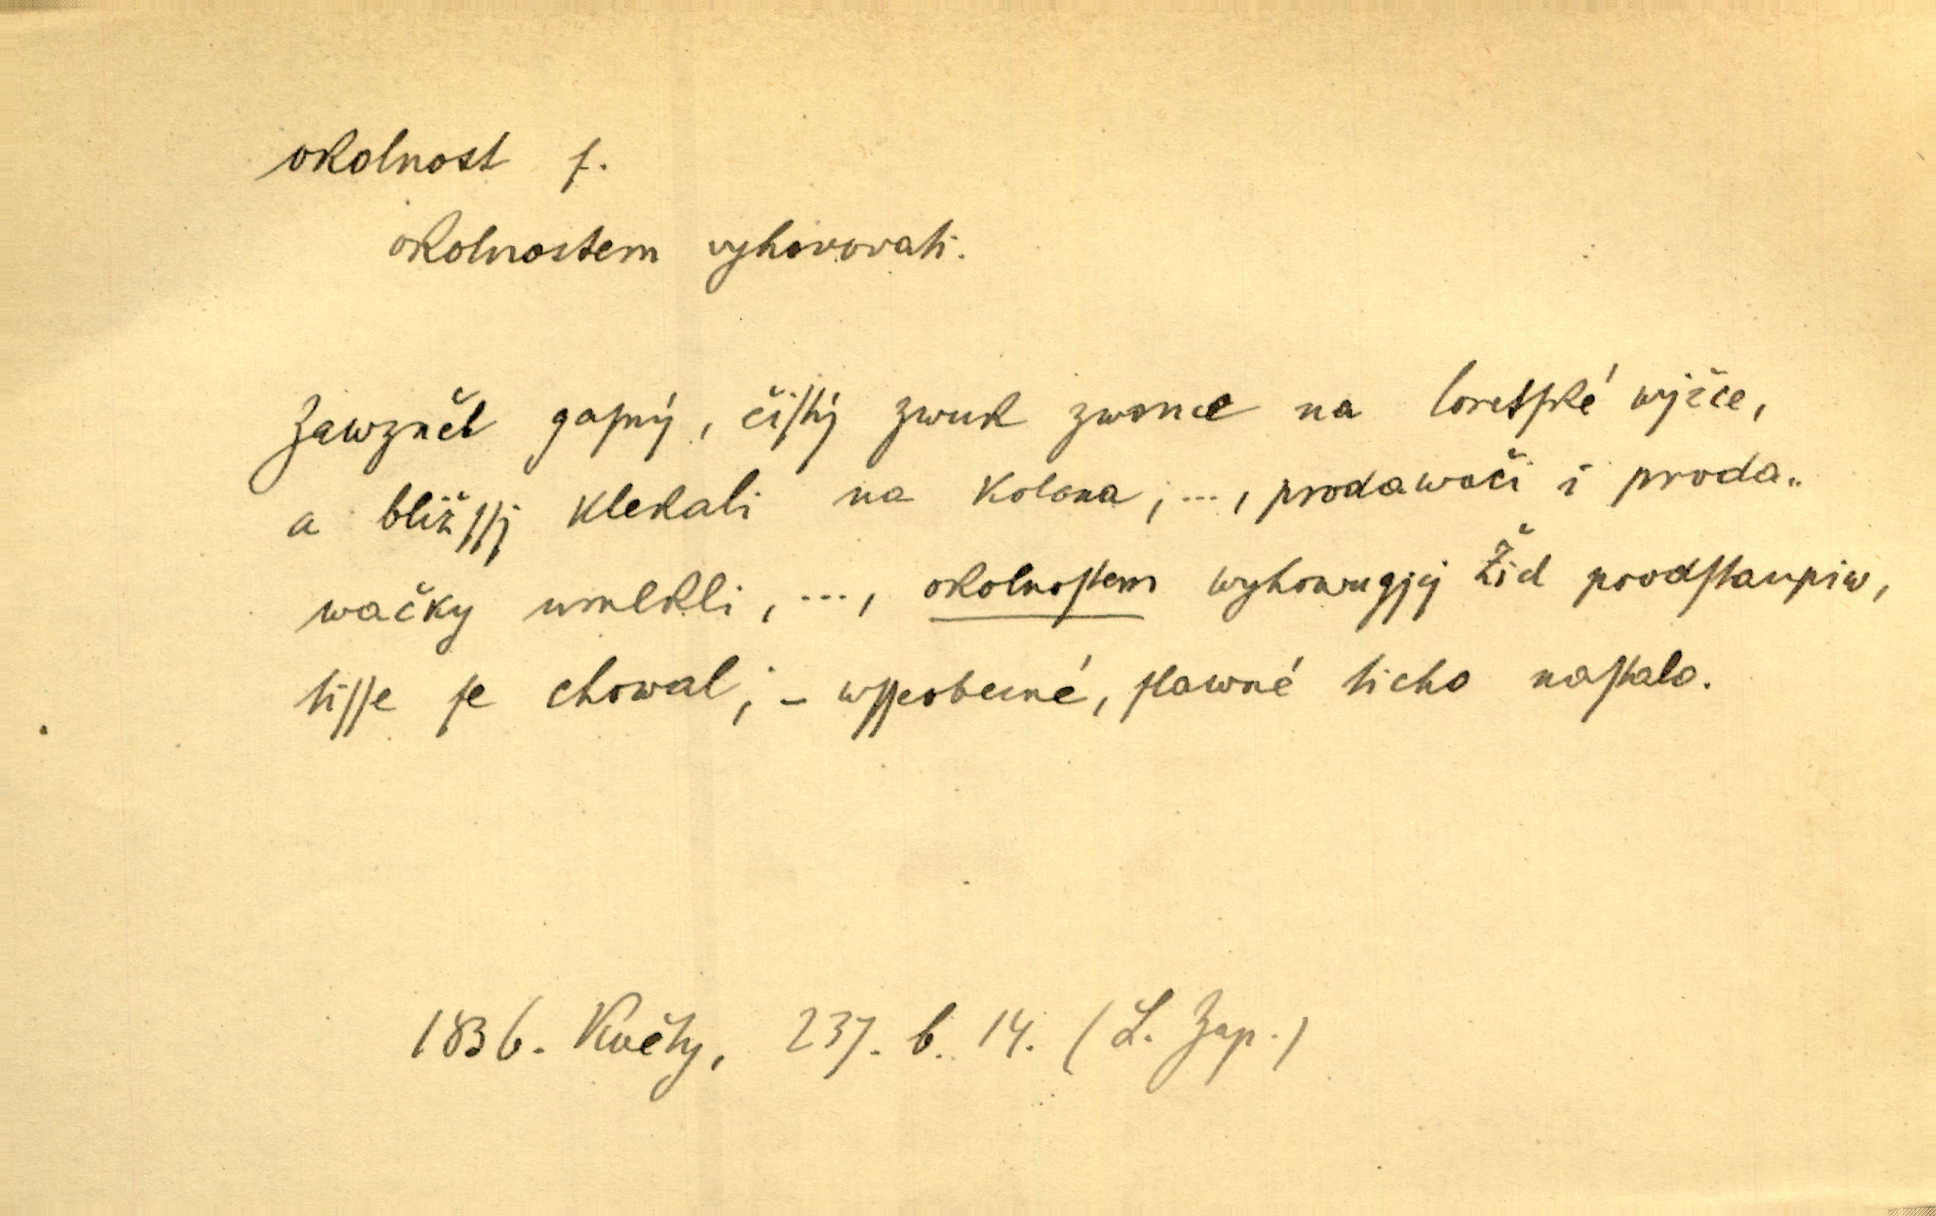 okolnost f.
okolnostem vyhovovati.
Zawzněl gaſný, čiſtý zwuk zwonce na loretſké wjžce,
a bližſſj klekali na kolena; ..., prodawači i proda„
wačky umlkli, ..., okolnoſtem wyhowugjcj Žid poodſtaupiw,
tiſſe ſe chowal; – wſſeobecné, ſlawné ticho naſtalo.
1836. Květy, 237. b. 14. (L. Zap.)